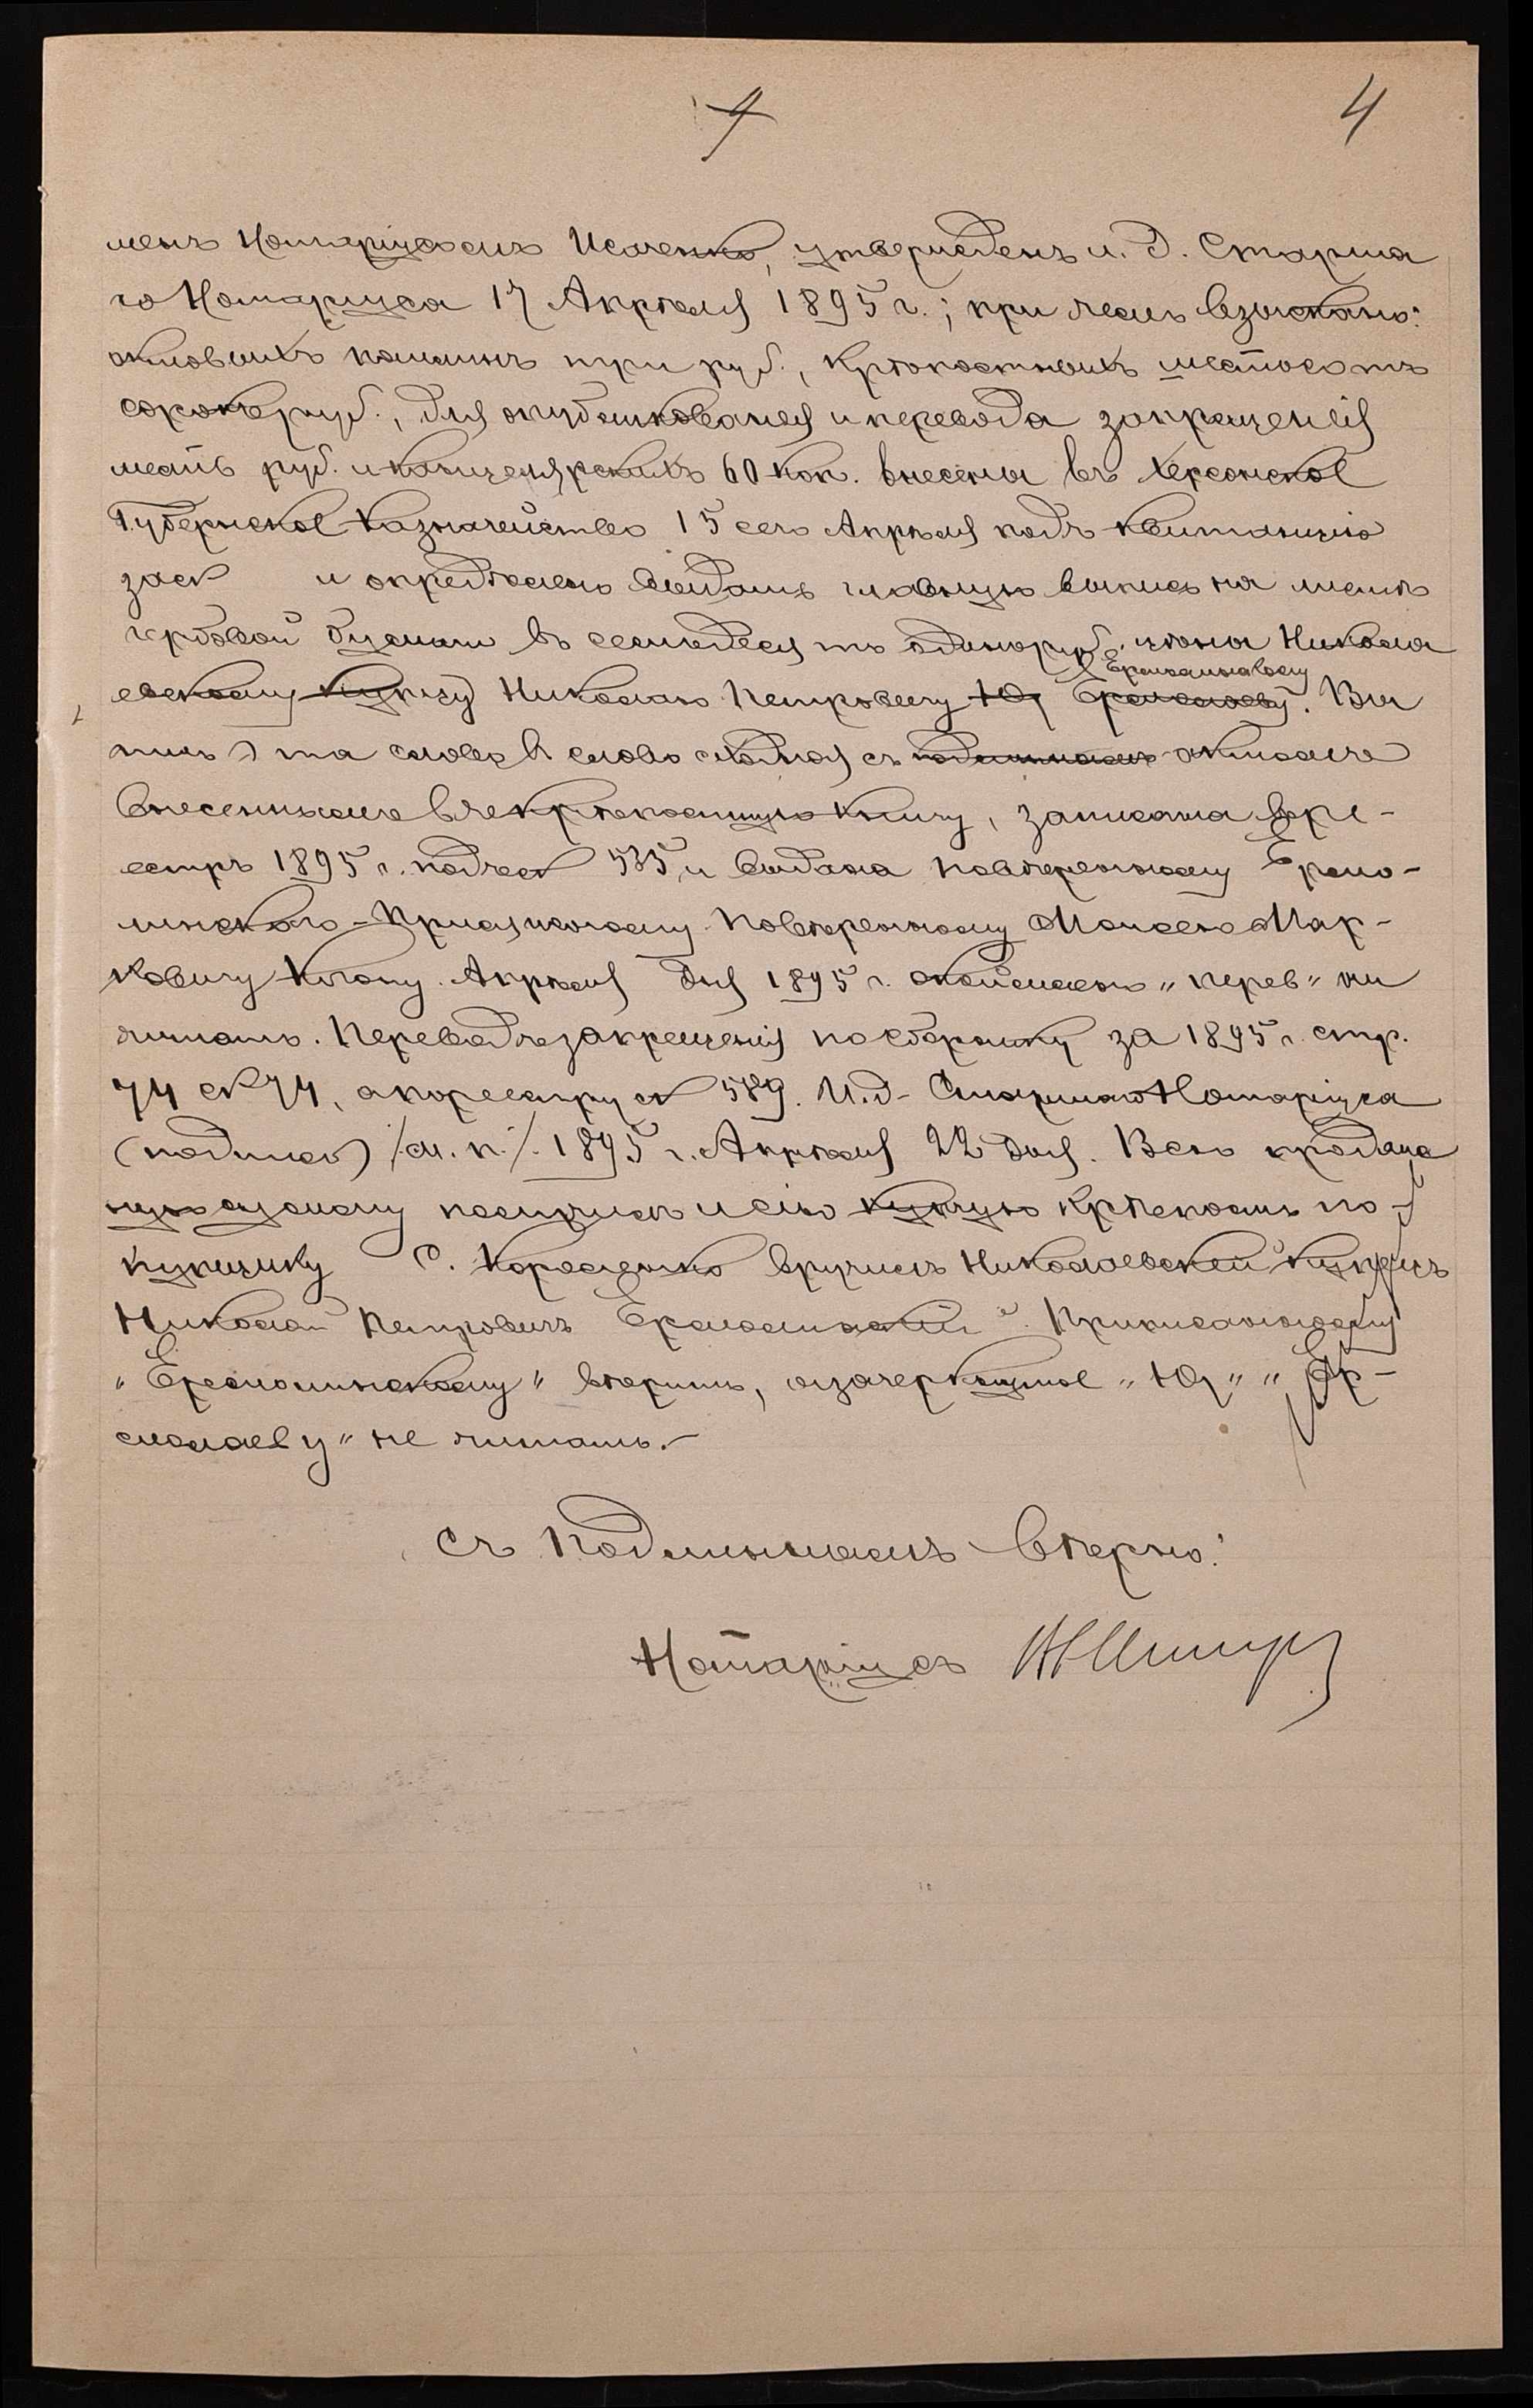 4 4
менъ Нотаріусомъ Исаченко, утвержденъ и. д. Старша
го Нотаріуса 17 Апрѣля 1895 г.; при чемъ взыскано:
актовыхъ пошлинъ три руб., крѣпостныхъ шестьсотъ
сорокъ руб., для опубликованія и перевода запрещенія
шесть руб. и канцелярскихъ 60 коп. внесены въ Херсонское
Губернское Казначейство 15 сего Апрѣля подъ квитанцію
за № и опредѣлено выдать главную выпись на листѣ
гербовой бумаги въ семьдесятъ одинъ руб. цѣны Никола
евскому купцу Николаю Петровичу Юр Ермолаеву. Вы
Ермолинскому
пись эта слово въ слово сходная съ подлиннымъ актомъ
внесеннымъ въ крѣпостную книгу, записана въ ре-
естръ 1895 г. подъ № 535 и выдана повѣренному Ермо-
линскаго - Присяжному Повѣренному Моисею Мар-
ковичу Когону. Апрѣля дня 1895 г. "перев" не
читать. Переводъ запрещенія по сборнику за 1895 г. стр.
74 № 74, а по реестру № 589. И. д. Старшаго Нотаріуса
(подпись) /м. п./. 1895 г. Апрѣля 22 дня. Всю
сумму получилъ и сію купчую крѣпость по-
купщику С. вручилъ Николаевскій купецъ
Николай Петровичъ Ермолинскій". Приписанному
"Ермолинскому" вѣрить, а зачеркнутое "Юр" " Ер-
молаеву" не читать.-
Съ подлиннымъ вѣрно:
Нотаріусъ